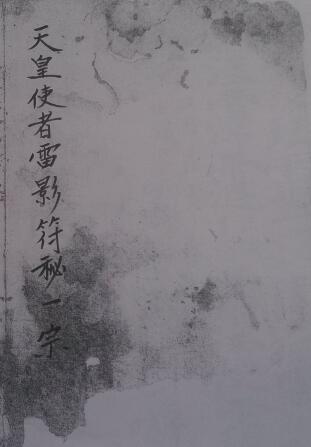 天皇使者雷影符秘一宗